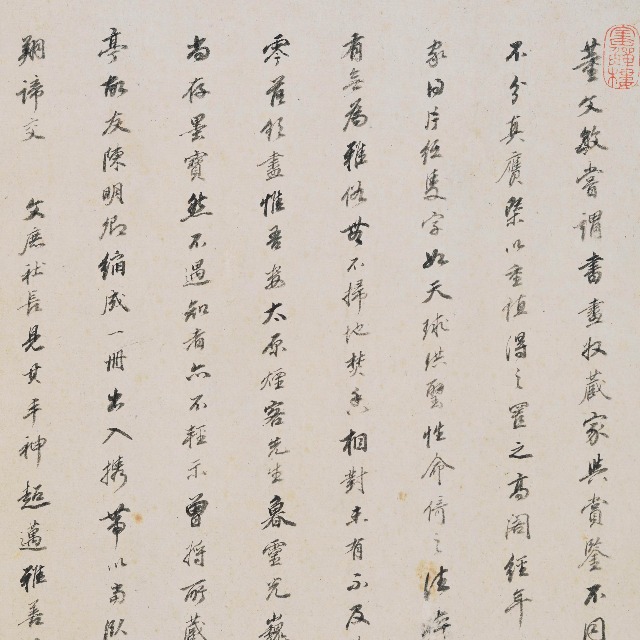 董文敏嘗謂書畫收藏家與賞鑒不同
不分真贋槩以重值得之置之高阁經年
家曰片紙隻字如天球拱璧性命倚之
有無為雅俗毋不掃地焚香相對未有不及
零落領盡惟吾婁太原煙客先生魯靈光巍
尚存墨寶然不過知者亦不輕示曾將所藏
亭故友陳明卿編成一冊出入携帶以當臥
翔諦交 文庶社長見其丰神超邁雅善